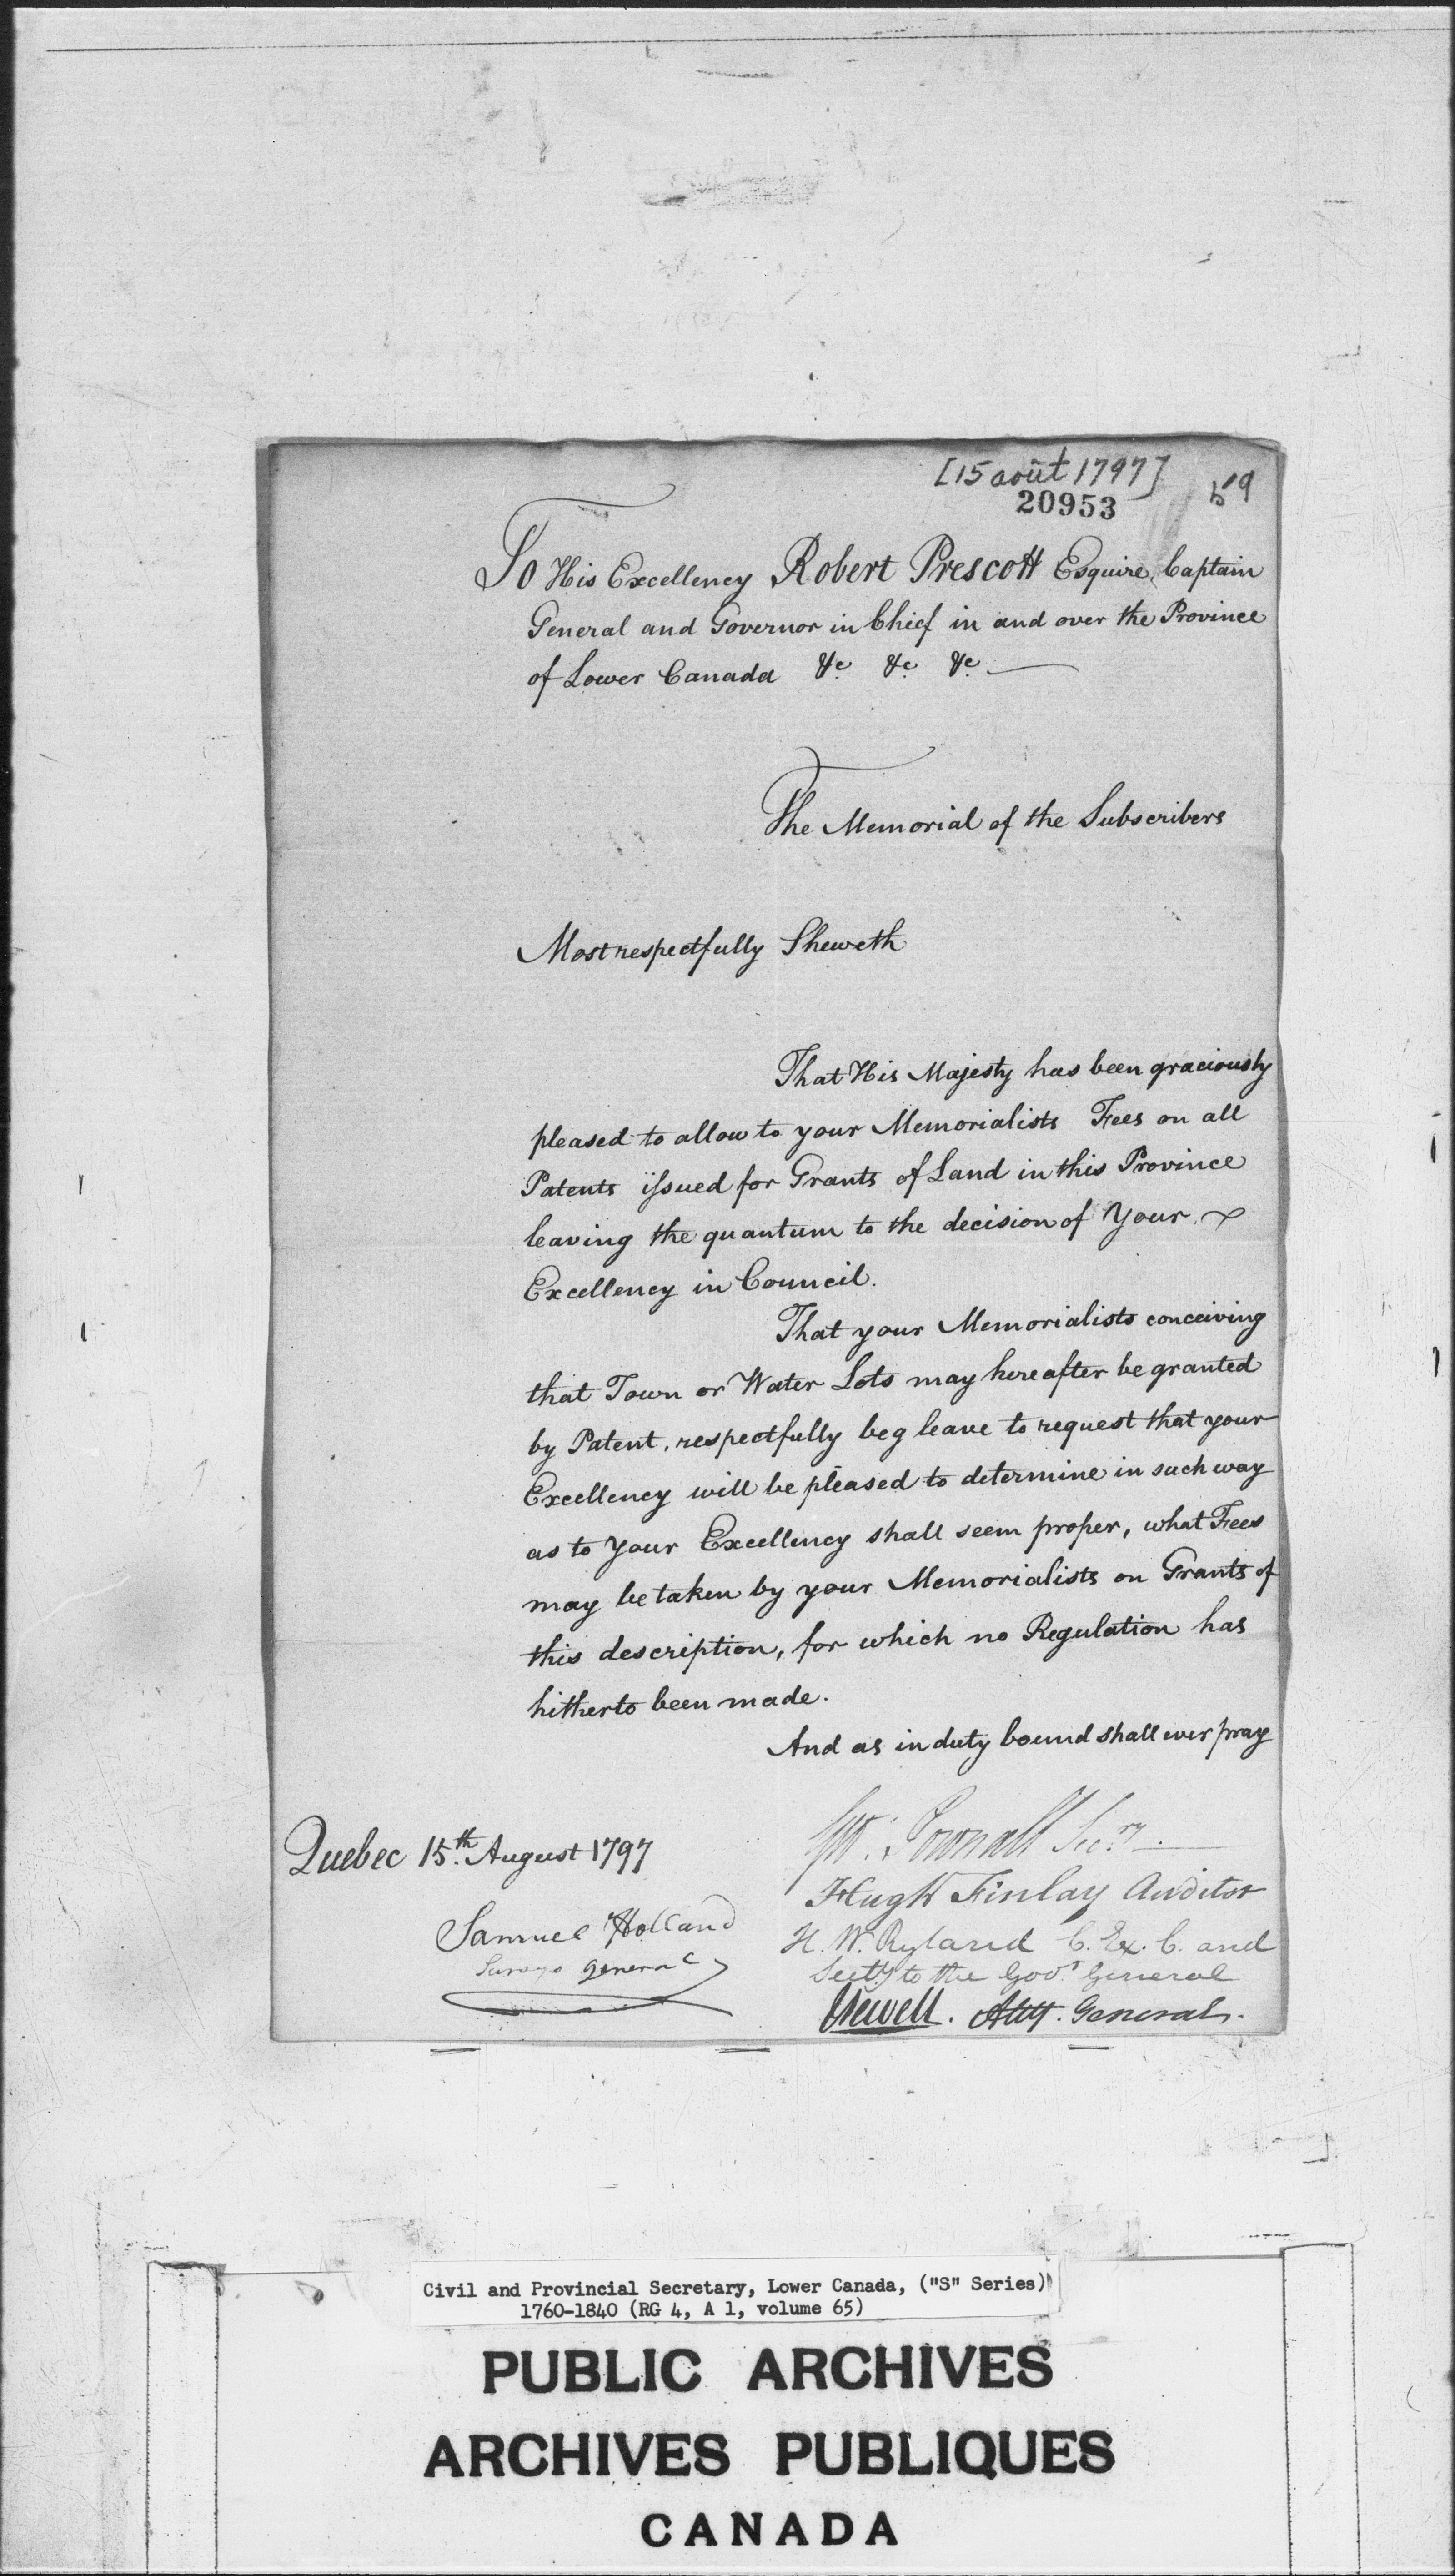 [15 août 1797]
20953
59
To His Excellency Robert Prescott Esquire, Captain
General and Governor in Chief in and over the Province
of Lower Canada &c &c &c
The Memorial of the Subscribers
Most respectfully Sheweth
That His Majesty has been graciously
pleased to allow to your Memorialists Fees on all
Patents issued for Grants of Land in this Province
leaving the quantum to the decision of Your
Excellency in Council.
That your Memorialists conceiving
that Town or Water Lots may hereafter be granted
by Patent, respectfully beg leave to request that your
Excellency will be pleased to determine in such way
as to Your Excellency shall seem proper, what Fees
may be taken by your Memorialists on Grants of
this description, for which no Regulation has
hitherto been made.
And as in duty bound shall ever pray
Quebec 15.th August 1797
Pownall Secry.
Hugh Finlay Auditor
Samuel Holland
H. W. Ryland C. Ex. C. and
Survey General
Secty to the Govr. General
JSewell. Atty. General.
Civil and Provincial Secretary, Lower Canada, ("S" Series)
1760-1840 (RG 4, A 1, volume 65)
PUBLIC ARCHIVES
ARCHIVES PUBLIQUES
CANADA